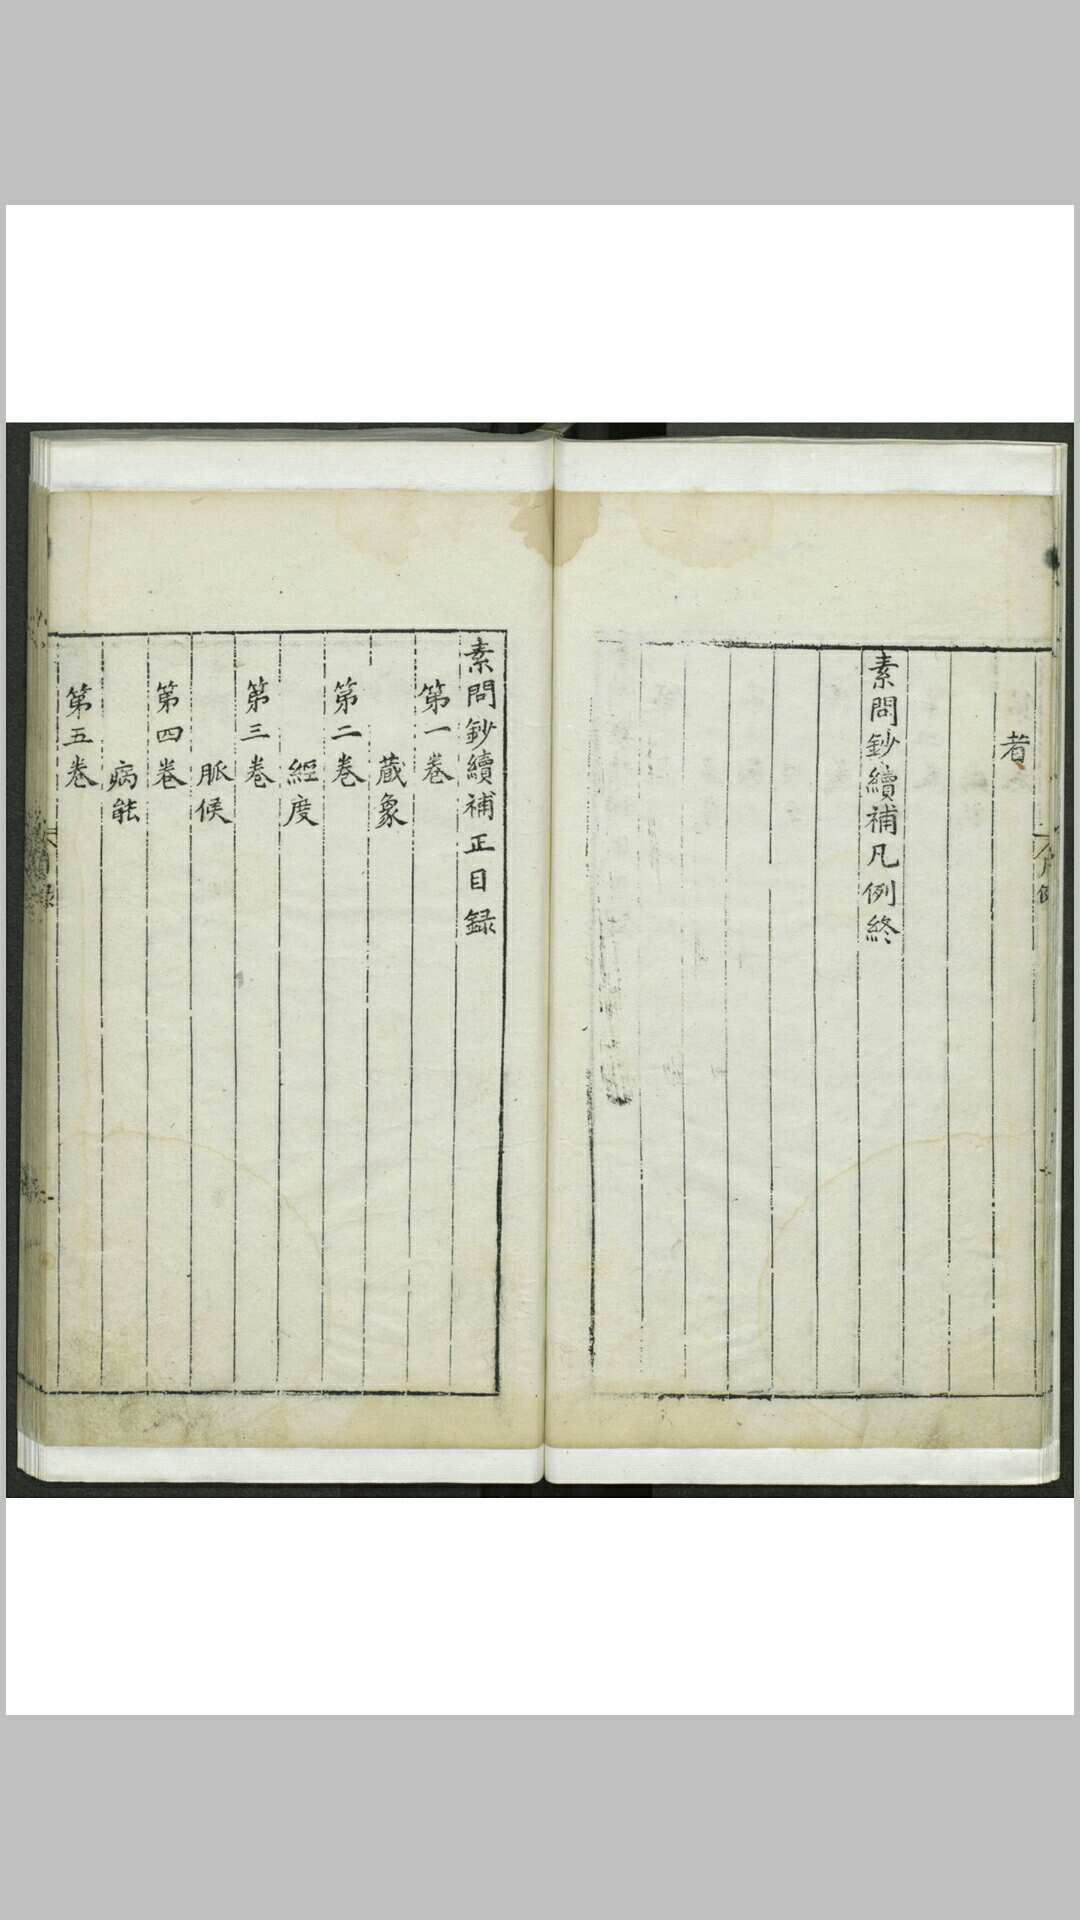 者
素問鈔續補凡例終
素問鈔續補正目録
第一卷
蔵象
第二卷
經度
第三卷
脈候
第四卷
病能
第五卷